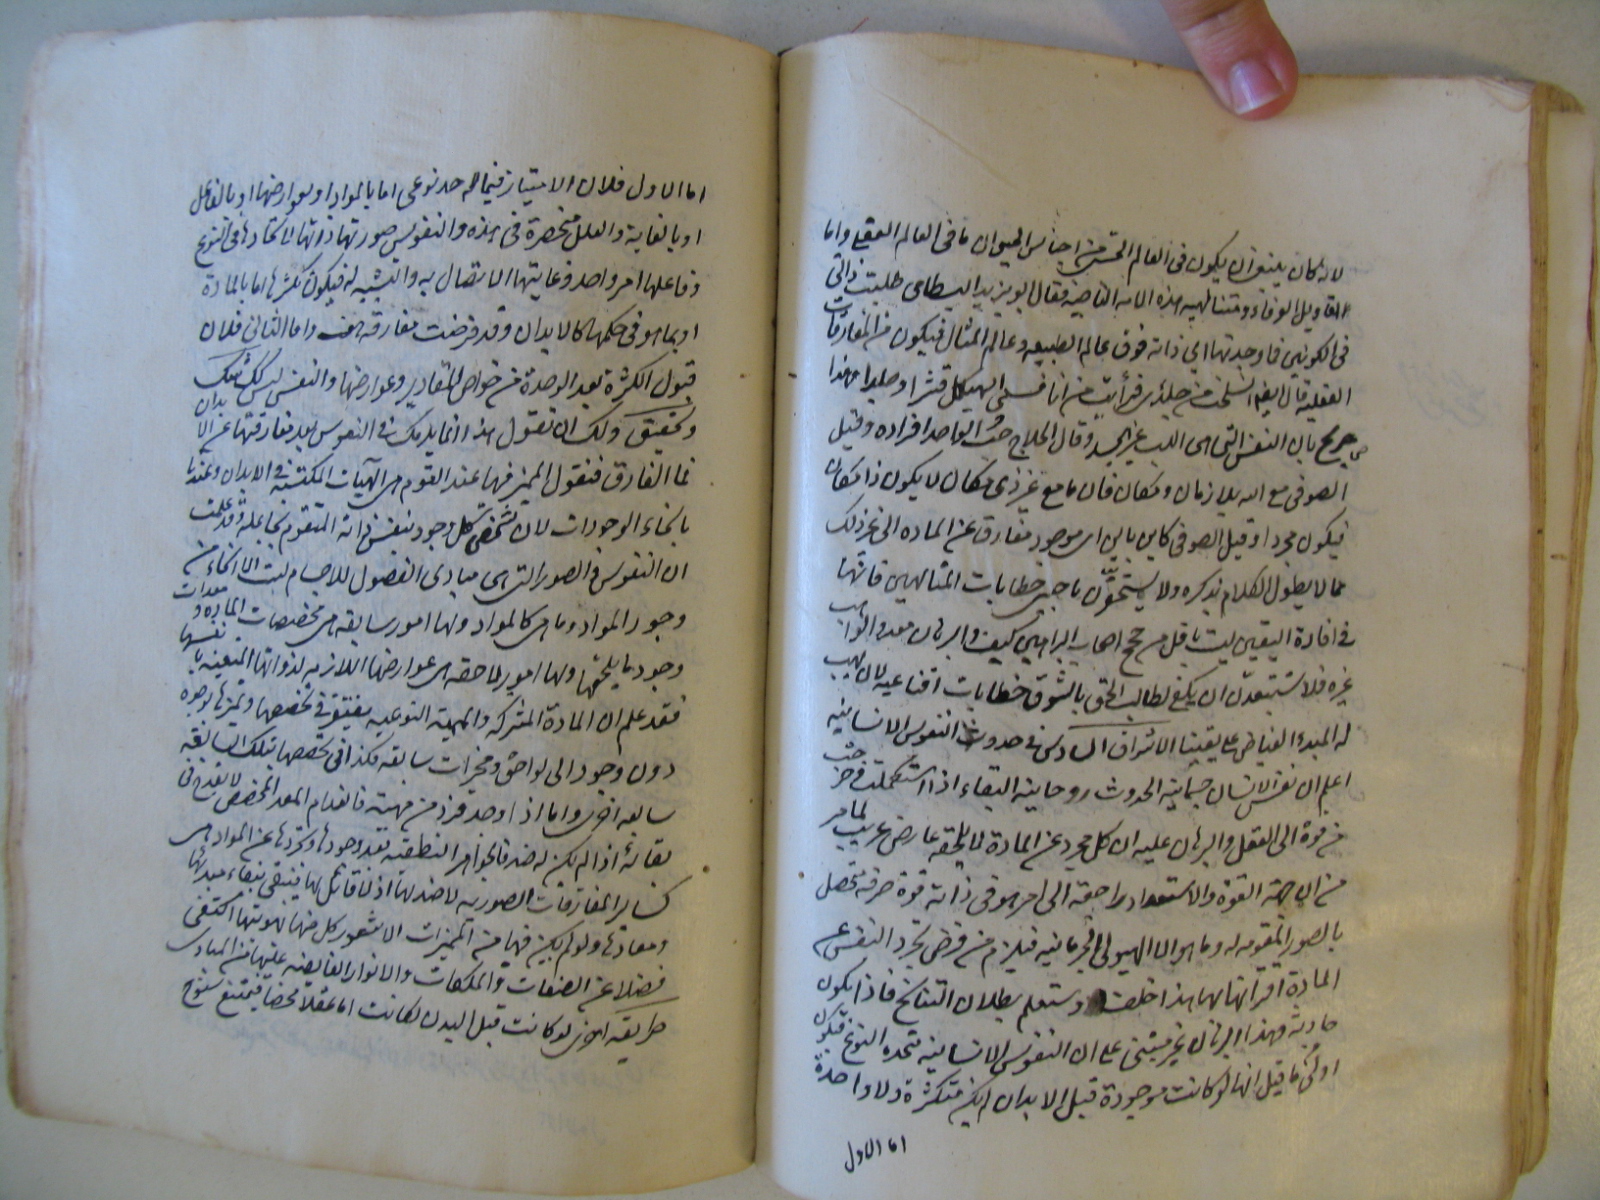 لانه كان ينبغي ان يكون في العالم الحسي من اجناس الحيوان ما في العالم العقلي واما
الاقاويل العرفاء ومتالهيه هذه الامه الناجيه فقال ابو يزيد البسطامي طلبت ذاتي
في الكونين فما وجدتها اي ذاته فوق عالم الطبيعه وعالم المثال فيكون من المفارقات
العقليه قال ايضا انسلخت من جلدي فرأيت من انا فسمى الهيكل قشرا وجلدا وهذا
صريح بان النفس التي هي اللب غير الجسد وقال الحلاج حسب الواحد افراده وقيل
الصوفي مع الله بلا زمان ومكان فان ما مع غير ذي مكان لا يكون ذا مكان
فيكون مجردا وقيل الصوفي كاين باين اي موجود مفارق عن الماده الى غير ذلك
مما لا يطول الكلام بذكره ولا يستحقرن يا حبيبي خطابات المتالهين فانها
في افادة اليقين ليست باقل من حجج اصحاب البراهين كيف والبرهان معد والواهب
غيره فلا تستبعدن ان يكفي لطالب الحق بالشوق خطابات اقناعيه لان يهب
له المبدء الفياض علما يقينيا الاشراق السادس في حدوث النفوس الانسانيه
اعلم ان نفس الانسان جسمانية الحدوث روحانية البقاء اذا استكملت وخرجت
من قوة الى العقل والبرهان عليه ان كل مجرد عن المادة لا يلحقه عارض غريب لما مر
من ان جهة القوة والاستعداد راجعة الى امر هو في ذاته قوة صرفه تحصل
بالصور المقومه له وما هو الا الهيولى الجرمانيه فيلزم من فرض تجرد النفس عن
المادة اقترانها بها هذا خلف وستعلم بطلان التناسخ فاذا يكون
حادثة فهذا البرهان غير مبتنى على ان النفوس الانسانيه متحده النوع فيكون
اولى مما قيل انها لو كانت موجودة قبل الابدان لم يكن متكثرة ولا واحدة
اما الاول
اما الاول فلان الامتياز فيما له حد نوعي اما بالمواد او بعوارضها او بالفاعل
او بالغاية والعلل منحصرة في هذه والنفوس صورتها ذاتها لاتحادها في النوع
وفاعلها امر واحد وغايتها الاتصال به والتشبه له فيكون تكثرها اما بالمادة
او بما هو في حكمها كالابدان وقد فرضت مفارقه هف واما الثاني فلان
قبول الكثرة بعد الوحدة من خواص المقادير وعوارضها والنفس ليس كك شك
وتحقيق ولك ان تقول هذا انما يدريك في النفوس بعد مفارقتها عن الابدان
فما الفارق فنقول المميز فيها عند القوم هي الهيآت المكتسبه في الابدان وعندنا
بانحاء الوجودات لان تشخص كل وجود بنفس ذاته المتقوم بجاعله وقد علمت
ان النفوس في الصور التي هي مبادي الفصول للاجسام ليست الا انحاء من
وجود المواد وما هي كالمواد ولها امور سابقه هي مخصصات المادة ومعدات
وجود ما يلحقها ولها امور لاحقه هي عوارضها اللازمه لذواتها المتعينه بانفسها
فقد علم ان المادة المشتركه والمهية النوعيه يفتقر في تخصصها وتميزها بوجود
دون وجود الى لواحق ومميزات سابقه وكذا في تخصصها بتلك السابقه
سابقه اخرى واما اذا وجد فرد من مهيته فانعدام المعد المخصص لا يقدح في
بقائه اذا لم يكن له ضد فالجواهر النطقيه بعد وجودها وتجردها عن المواد هي
كساير المفارقات الصوريه لا ضد لها اذ لا قابل لها فيبقى ببقاء مبدئها
ومعادها ولو لم يكن فيها من المميزات الا شعور كل منها لهويتها لكفى
فضلا عن الصفات والملكات والانوار الفايضه عليها من المبادي
طريقه اخرى لو كانت قبل البدن لكانت اما عقلا محضا فيمتنع سنوح